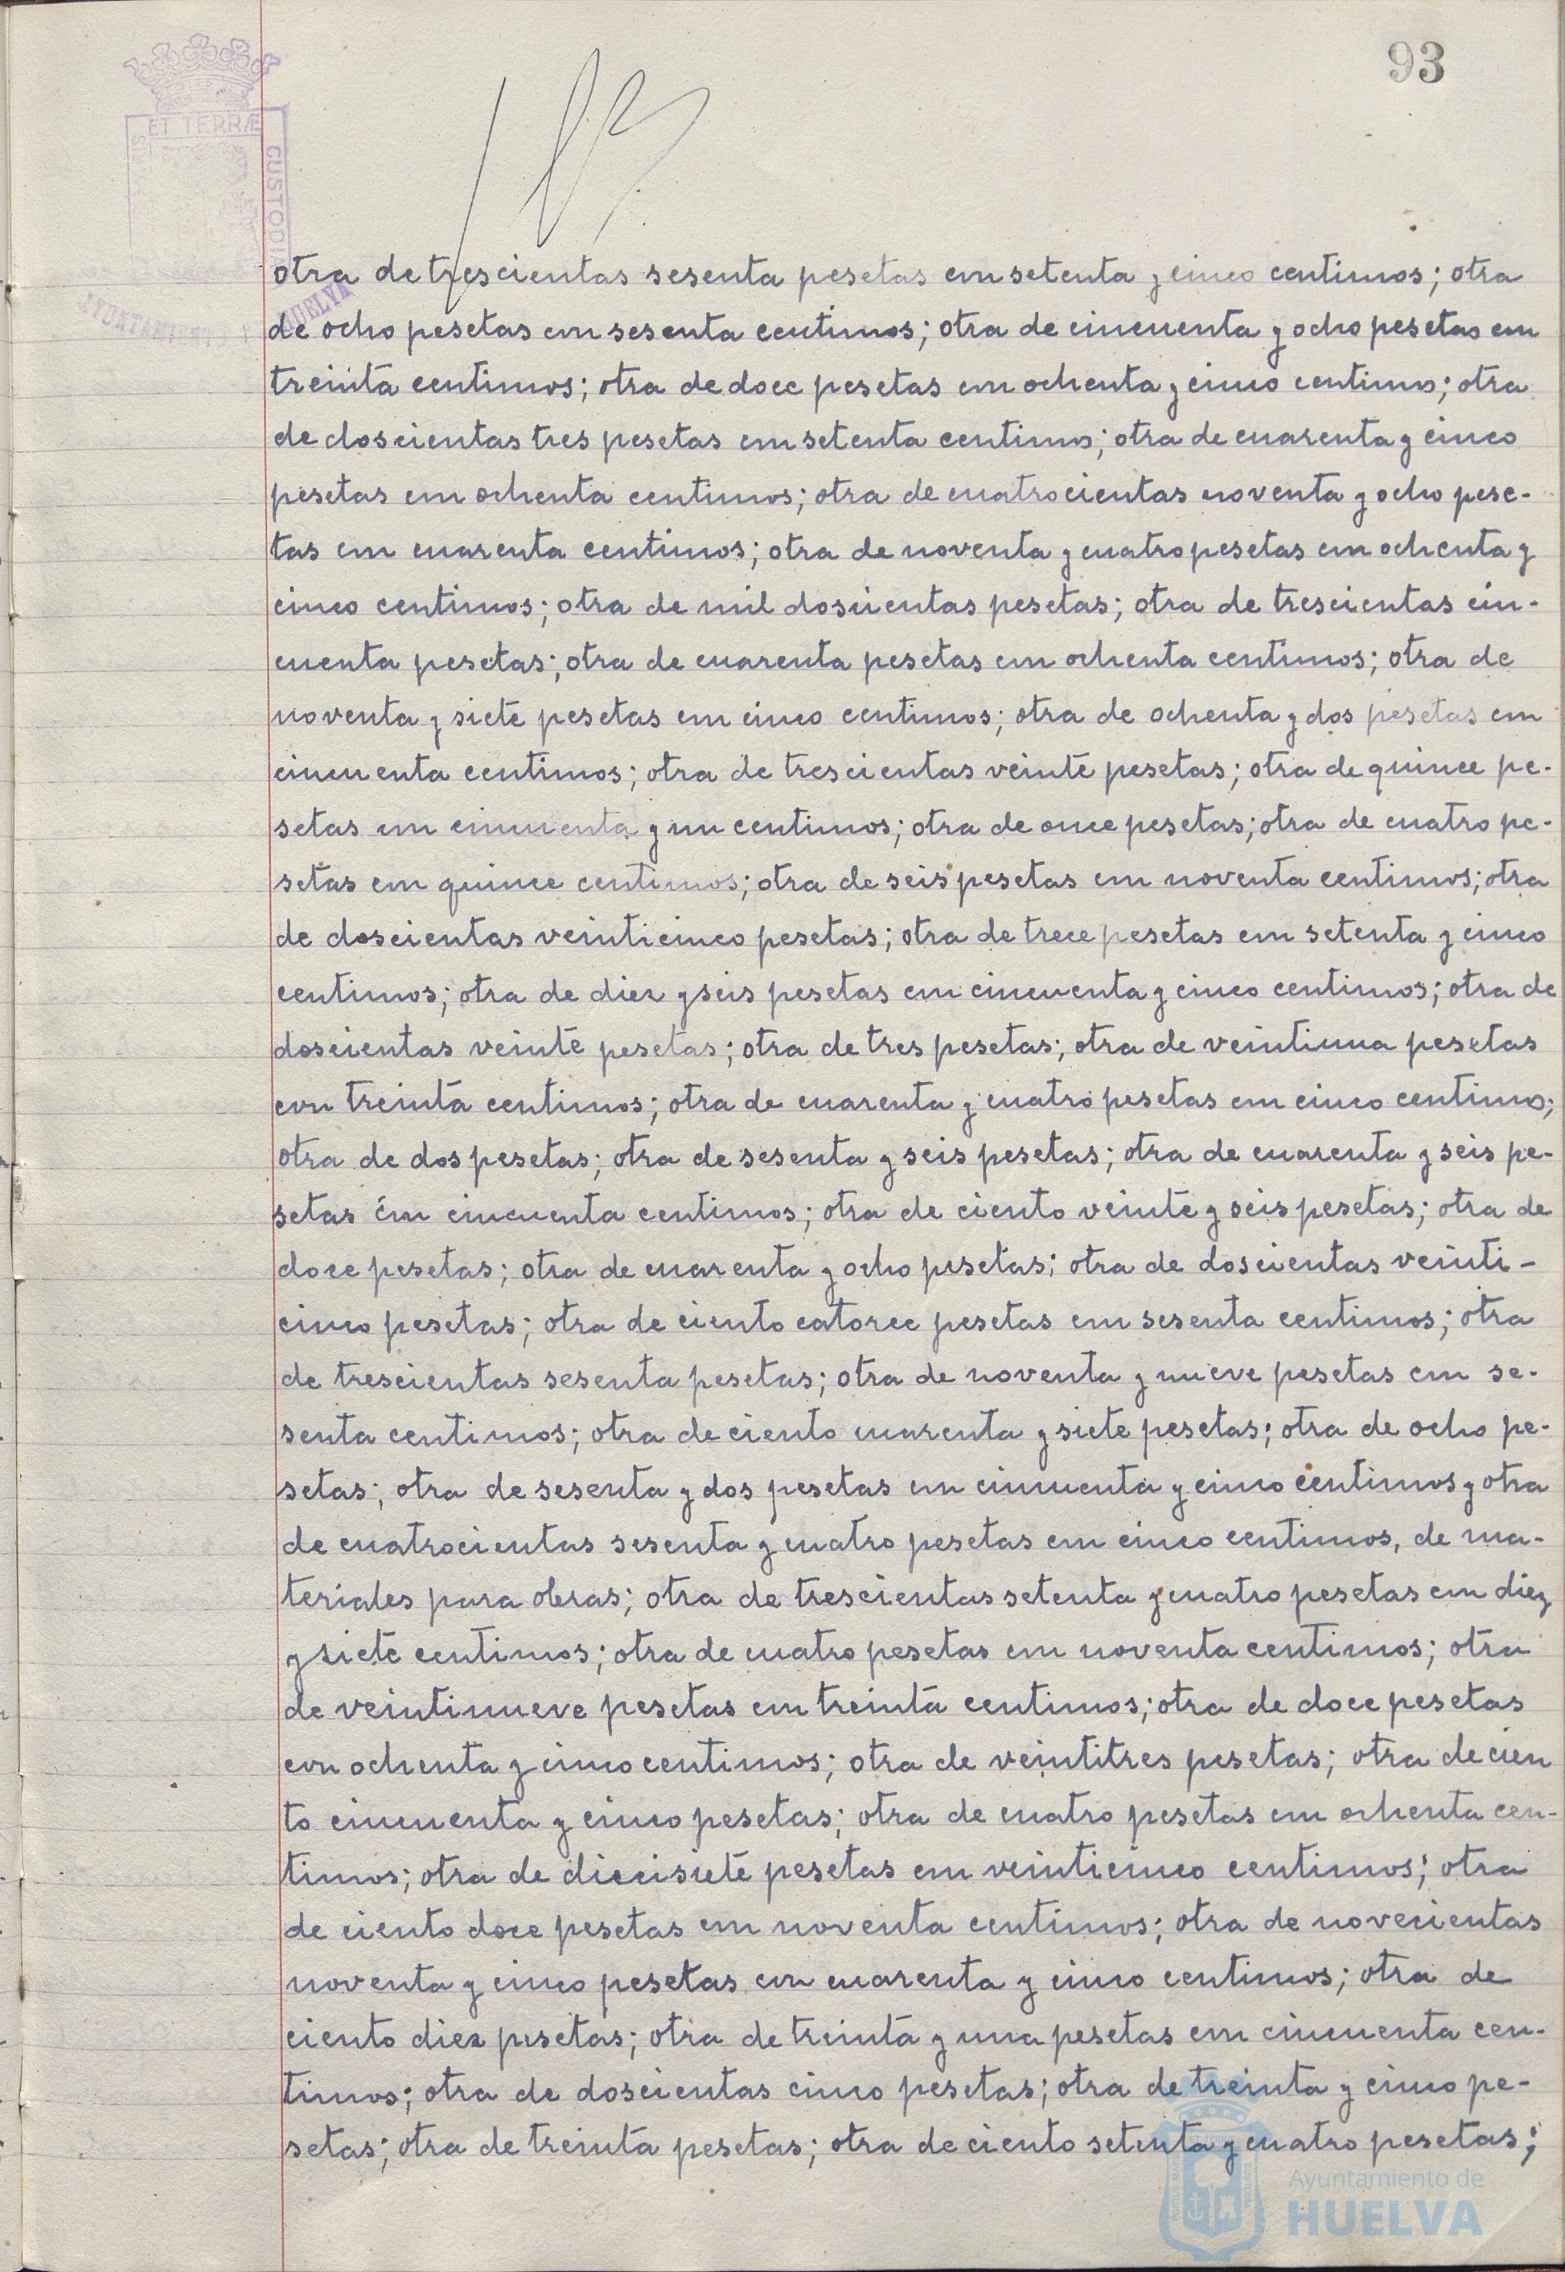 93
ET TERRÆ
CUSTODIA
AYUNTAMIENTO HUELVA
otra de trescientas sesenta pesetas con setenta y cinco centimos; otra
de ocho pesetas con sesenta centimos; otra de cincuenta y ocho pesetas con
treinta centimos; otra de doce pesetas con ochenta y cinco centimos; otra
de doscientas tres pesetas con setenta centimos; otra de cuarenta y cinco
pesetas con ochenta centimos; otra de cuatrocientas noventa y ocho pese-
tas con cuarenta centimos; otra de noventa y cuatro pesetas con ochenta y
cinco centimos; otra de mil doscientas pesetas; otra de trescientas cin-
cuenta pesetas; otra de cuarenta pesetas con ochenta centimos; otra de
noventa y siete pesetas con cinco centimos; otra de ochenta y dos pesetas con
cincuenta centimos; otra de trescientas veinte pesetas; otra de quince pe-
setas con cincuenta y un centimos; otra de once pesetas; otra de cuatro pe-
setas con quince centimos; otra de seis pesetas con noventa centimos; otra
de doscientas veinticinco pesetas; otra de trece pesetas con setenta y cinco
centimos; otra de diez y seis pesetas con cincuenta y cinco centimos; otra de
doscientas veinte pesetas; otra de tres pesetas; otra de veintiuna pesetas
con treinta centimos; otra de cuarenta y cuatro pesetas con cinco centimos;
otra de dos pesetas; otra de sesenta y seis pesetas; otra de cuarenta y seis pe-
setas con cincuenta centimos; otra de ciento veinte y seis pesetas; otra de
doce pesetas; otra de cuarenta y ocho pesetas; otra de doscientas veinti-
cinco pesetas; otra de ciento catorce pesetas con sesenta centimos; otra
de trescientas sesenta pesetas; otra de noventa y nueve pesetas con se-
senta centimos; otra de ciento cuarenta y siete pesetas; otra de ocho pe-
setas; otra de sesenta y dos pesetas con cincuenta y cinco centimos y otra
de cuatrocientas sesenta y cuatro pesetas con cinco centimos, de ma-
teriales para obras; otra de trescientas setenta y cuatro pesetas con diez
y siete centimos; otra de cuatro pesetas con noventa centimos; otra
de veintinueve pesetas con treinta centimos; otra de doce pesetas
con ochenta y cinco centimos; otra de veintitres pesetas; otra de cien
to cincuenta y cinco pesetas; otra de cuatro pesetas con ochenta cen-
timos; otra de diecisiete pesetas con veinticinco centimos; otra
de ciento doce pesetas con noventa centimos; otra de novecientas
noventa y cinco pesetas con cuarenta y cinco centimos; otra de
ciento diez pesetas; otra de treinta y una pesetas con cincuenta cen-
timos; otra de doscientas cinco pesetas; otra de treinta y cinco pe-
setas; otra de treinta pesetas; otra de ciento setenta y cuatro pesetas;
Ayuntamiento de
HUELVA